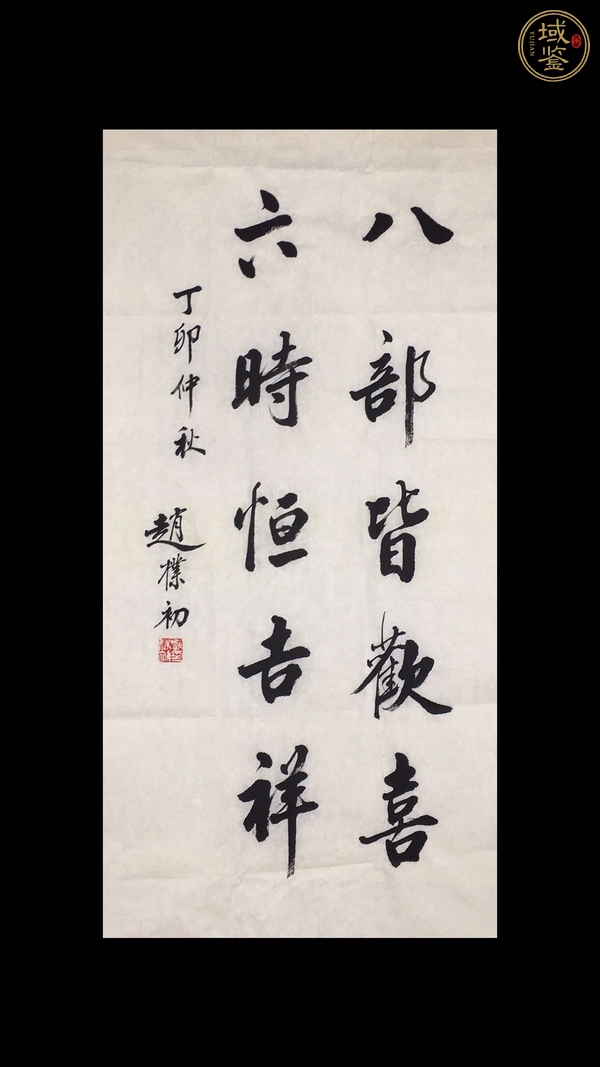 八部皆歡喜
六時恒吉祥
丁卯仲秋
趙樸初
域鉴
YUJIAN